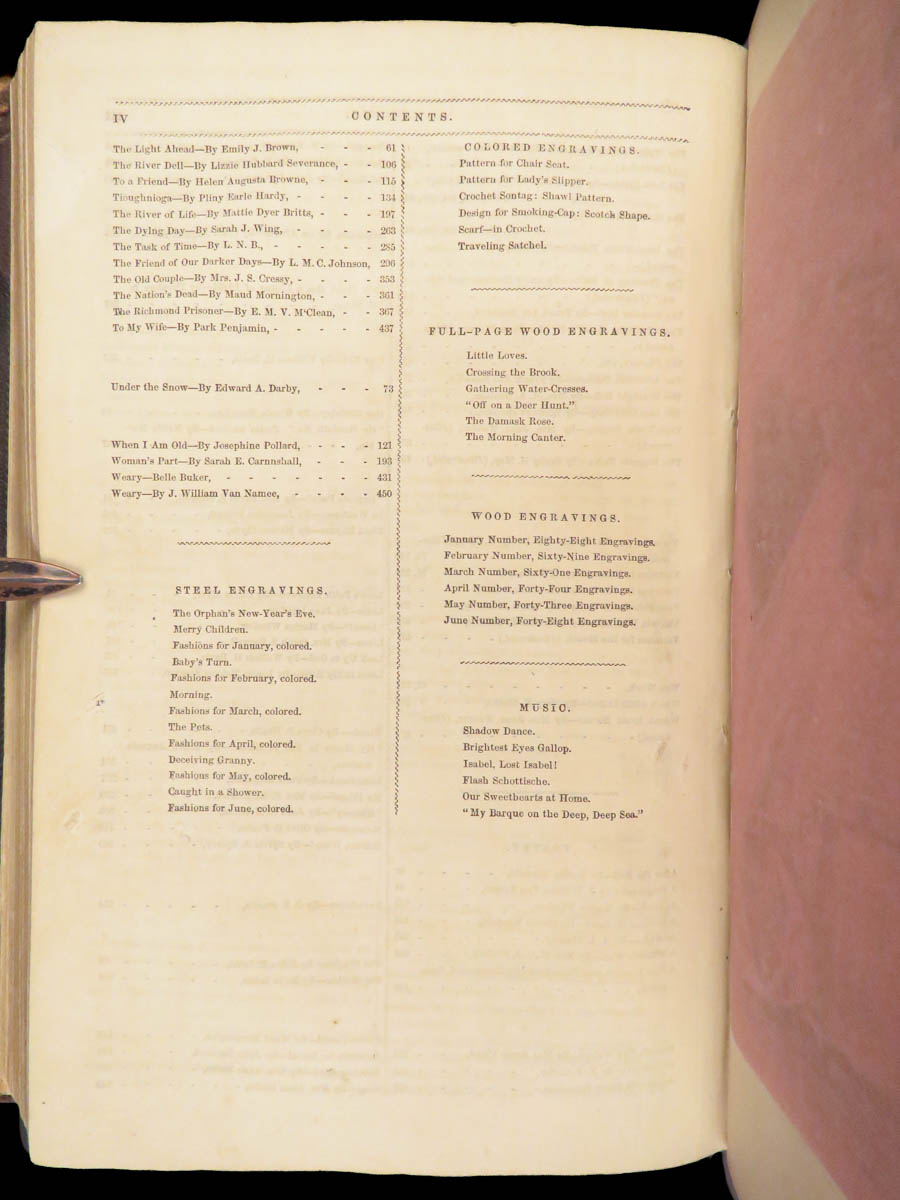 IV
CONTENTS.
The Light Ahead—By Emily J. Brown, - - - 61
The River Dell—By Lizzie Hubbard Severance, - - 106
To a Friend—By Helen Augusta Browne, - - - 115
Tioughnioga—By Pliny Earle Hardy, - - - - 134
The River of Life—By Mattie Dyer Britts, - - - 197
The Dying Day—By Sarah J. Wing, - - - - 263
The Task of Time—By L. N. B., - - - - - 285
The Friend of Our Darker Days—By L. M. C. Johnson, 296
The Old Couple—By Mrs. J. S. Cressy, - - - - 353
The Nation's Dead—By Maud Mornington, - - - 361
The Richmond Prisoner—By E. M. V. M'Clean, - - 367
To My Wife—By Park Penjamin, - - - - - 437
Under the Snow—By Edward A. Darby, - - - 73
When I Am Old—By Josephine Pollard, - - - - 121
Woman's Part—By Sarah E. Carnnshall, - - - 193
Weary—Belle Buker, - - - - - - - 431
Weary—By J. William Van Namee, - - - - 450
STEEL ENGRAVINGS.
The Orphan's New-Year's Eve.
Merry Children.
Fashions for January, colored.
Baby's Turn.
Fashions for February, colored.
Morning.
Fashions for March, colored.
The Pets.
Fashions for April, colored.
Deceiving Granny.
Fashions for May, colored.
Caught in a Shower.
Fashions for June, colored.
COLORED ENGRAVINGS.
Pattern for Chair Seat.
Pattern for Lady's Slipper.
Crochet Sontag: Shawl Pattern.
Design for Smoking-Cap: Scotch Shape.
Scarf—in Crochet.
Traveling Satchel.
FULL-PAGE WOOD ENGRAVINGS.
Little Loves.
Crossing the Brook.
Gathering Water-Cresses.
"Off on a Deer Hunt."
The Damask Rose.
The Morning Canter.
WOOD ENGRAVINGS.
January Number, Eighty-Eight Engravings.
February Number, Sixty-Nine Engravings.
March Number, Sixty-One Engravings.
April Number, Forty-Four Engravings.
May Number, Forty-Three Engravings.
June Number, Forty-Eight Engravings.
MUSIC.
Shadow Dance.
Brightest Eyes Gallop.
Isabel, Lost Isabel!
Flash Schottische.
Our Sweethearts at Home.
"My Barque on the Deep, Deep Sea."